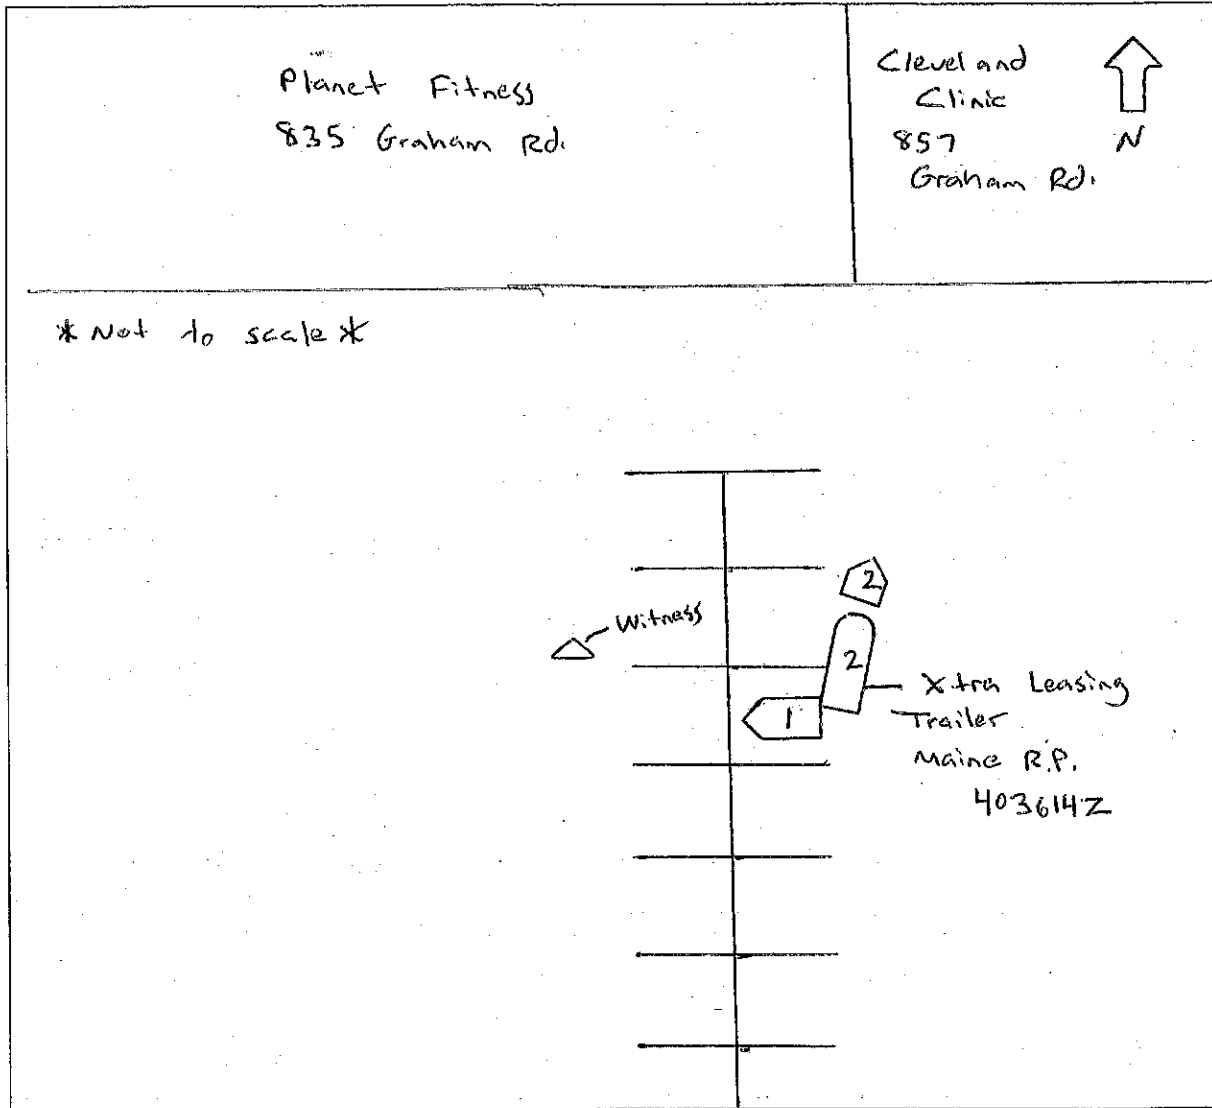 Planet Fitness
835 Graham Rd.
Cleveland
Clinic
857
Graham Rd.
N
* Not to scale *
2
Witness
2
1
Xtra Leasing
Trailer
Maine R.P.
403614Z